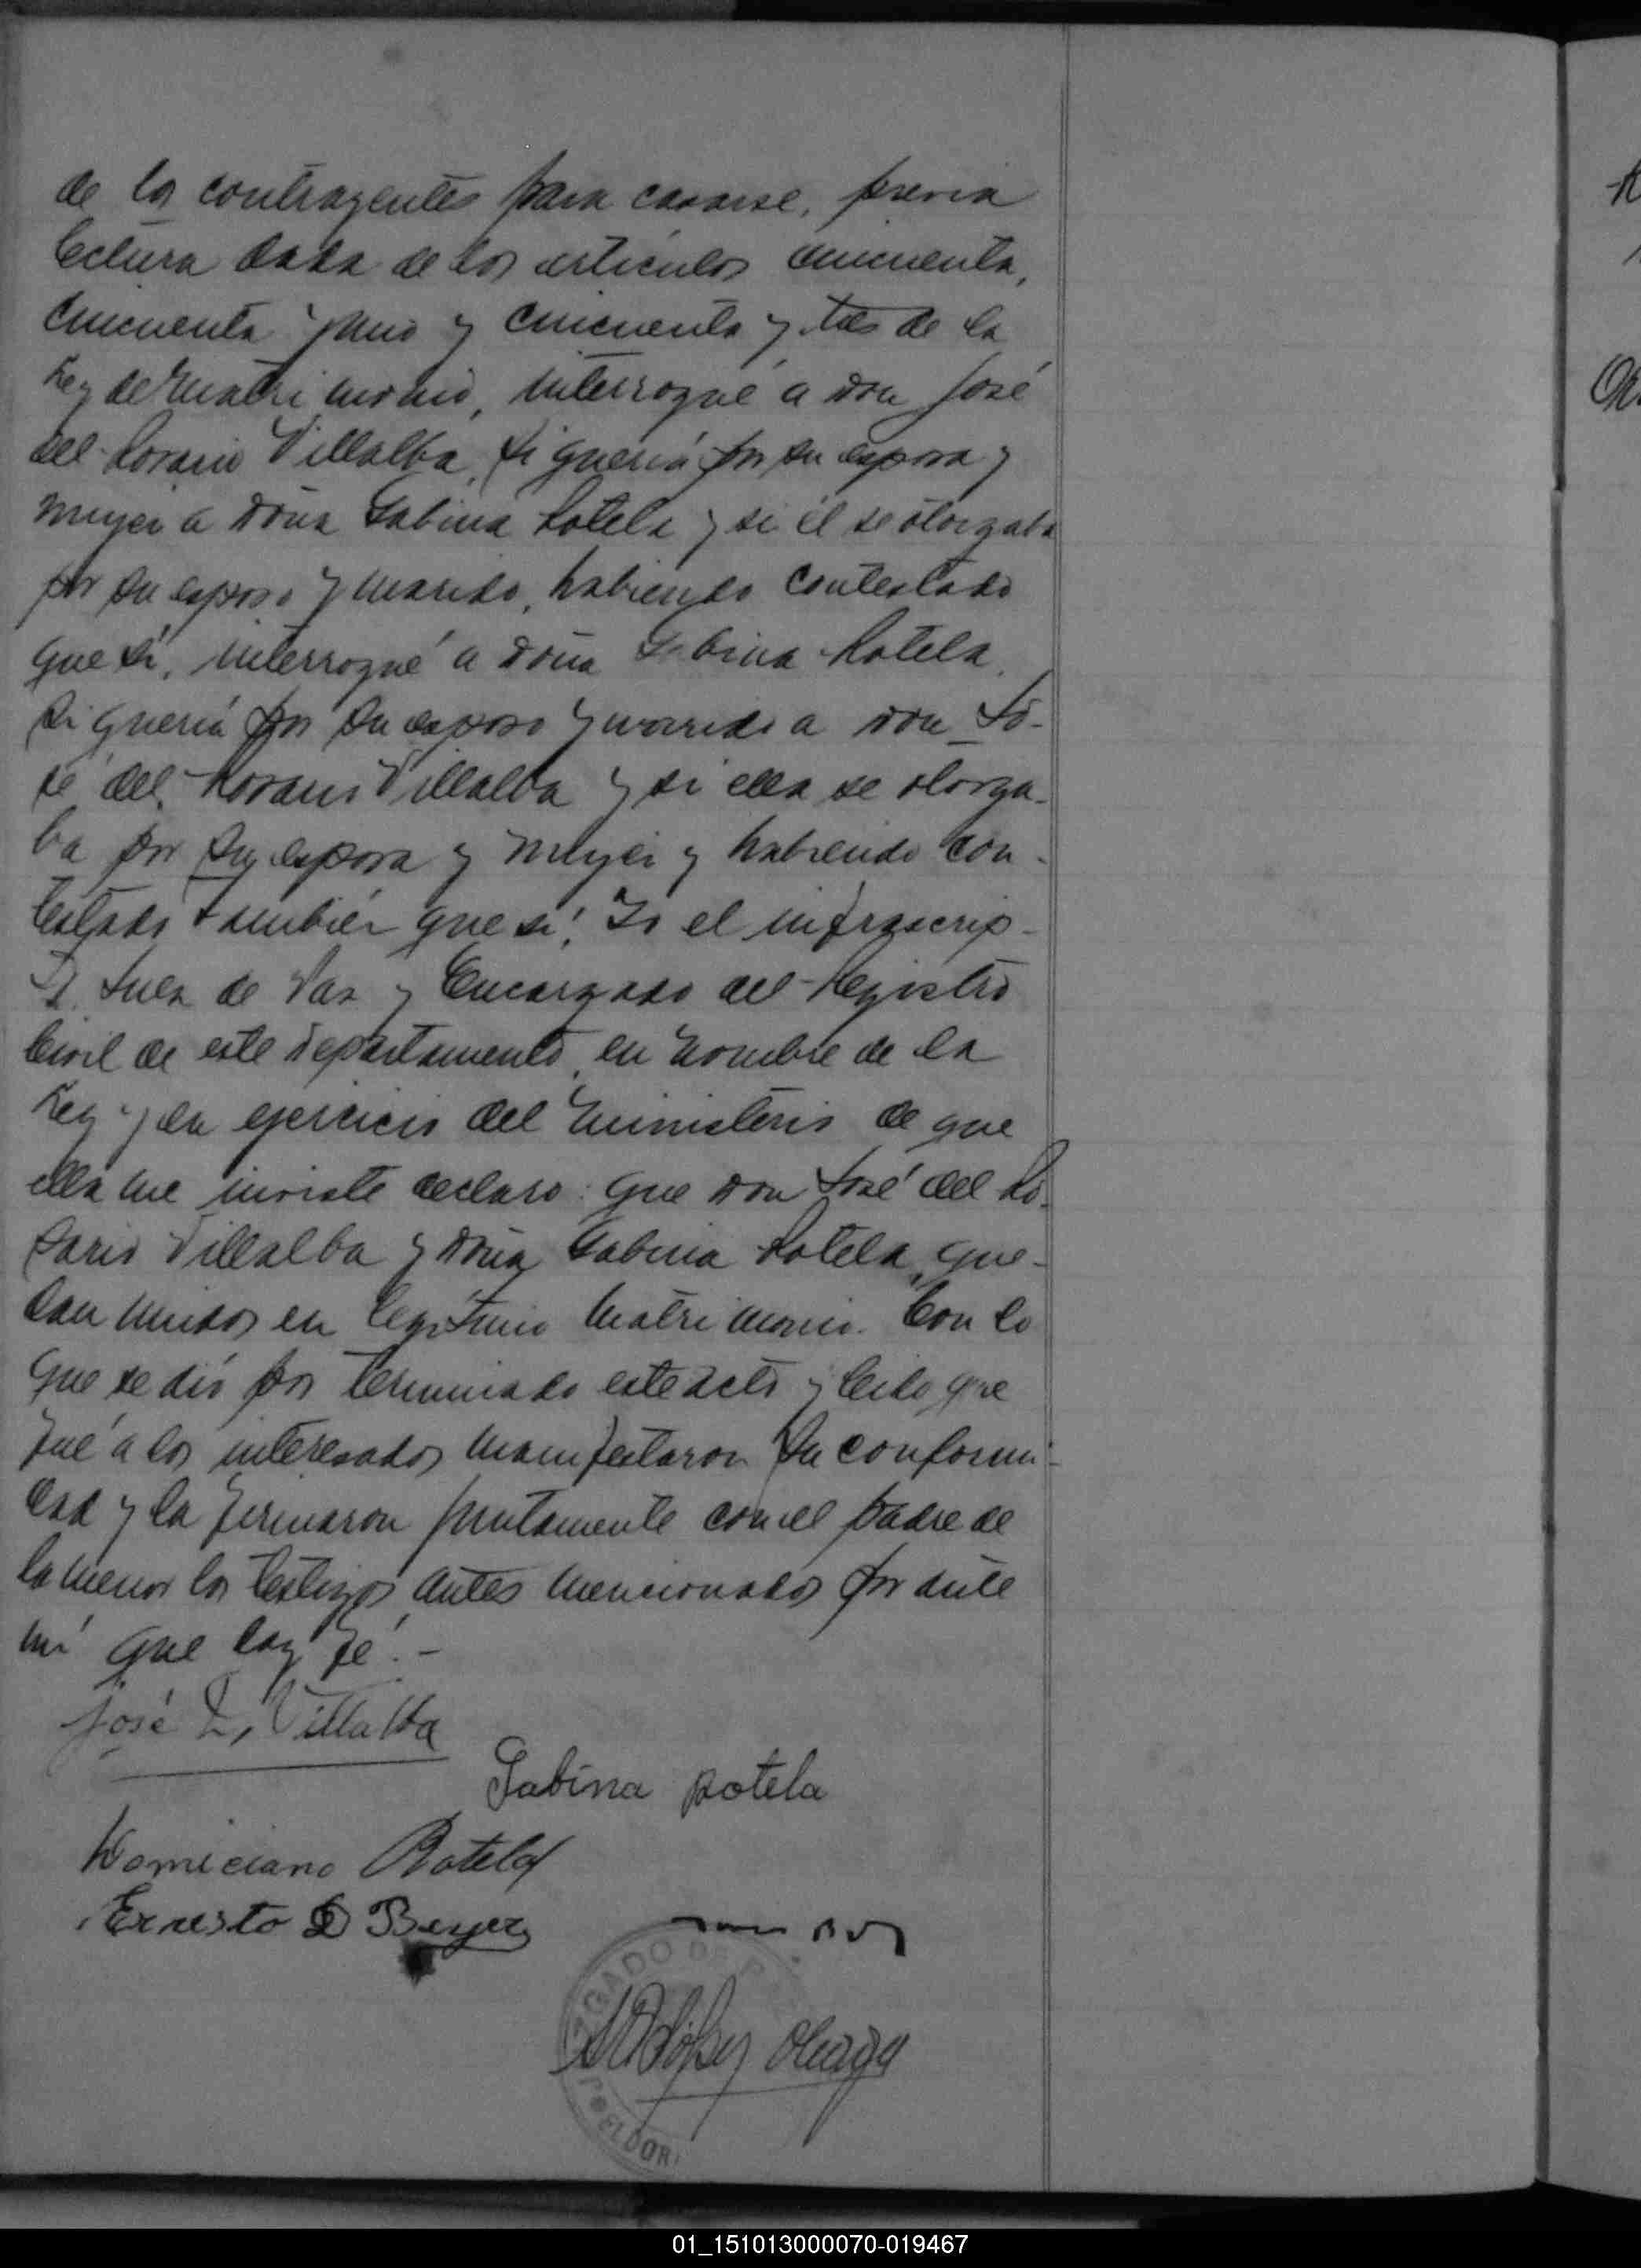 de los contrayentes para casarse, previa
lectura dada de los artículos cincuenta,
cincuenta y uno y cincuenta y tres de la
Ley de Matrimonio, interrogué a don José
del Rosario Villalba, si quería por su esposa y
mujer a doña Sabina Rotela y si él se otorgaba
por su esposo y marido, habiendo contestado
que sí, interrogué a doña Sabina Rotela,
si quería por su esposo y marido a don Jo-
sé del Rosario Villalba y si ella se otorga-
ba por su esposa y mujer y habiendo con-
testado también que sí, Yo el infrascrip-
to Juez de Paz y Encargado del Registro
Civil de este departamento, en nombre de la
Ley y en ejercicio del ministerio de que
ella me inviste declaro: que don José del Ro-
sario Villalba y doña Sabina Rotela, que-
dan unidos en legítimo matrimonio. Con lo
que se dió por terminado este acto y leido que
fué a los interesados manifestaron su conformi-
dad y la firmaron juntamente con el padre de
la menor los testigos antes mencionados por ante
mí que doy fé.-
José R. Villalba
Sabina Rotela
Domiciano Rotela
Ernesto D Beyer
López
JUZGADO DE P
ELDOR
01_151013000070-019467